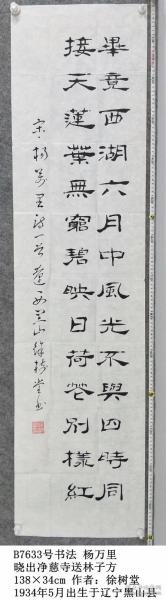 畢竟西湖六月中風光不與四時同
接天蓮葉無窮碧映日荷花別樣紅
宋楊萬里詩一首遼西黑山徐樹堂書
B7633号书法 杨万里
晓出净慈寺送林子方
138×34cm 作者：徐树堂
1934年5月出生于辽宁黑山县